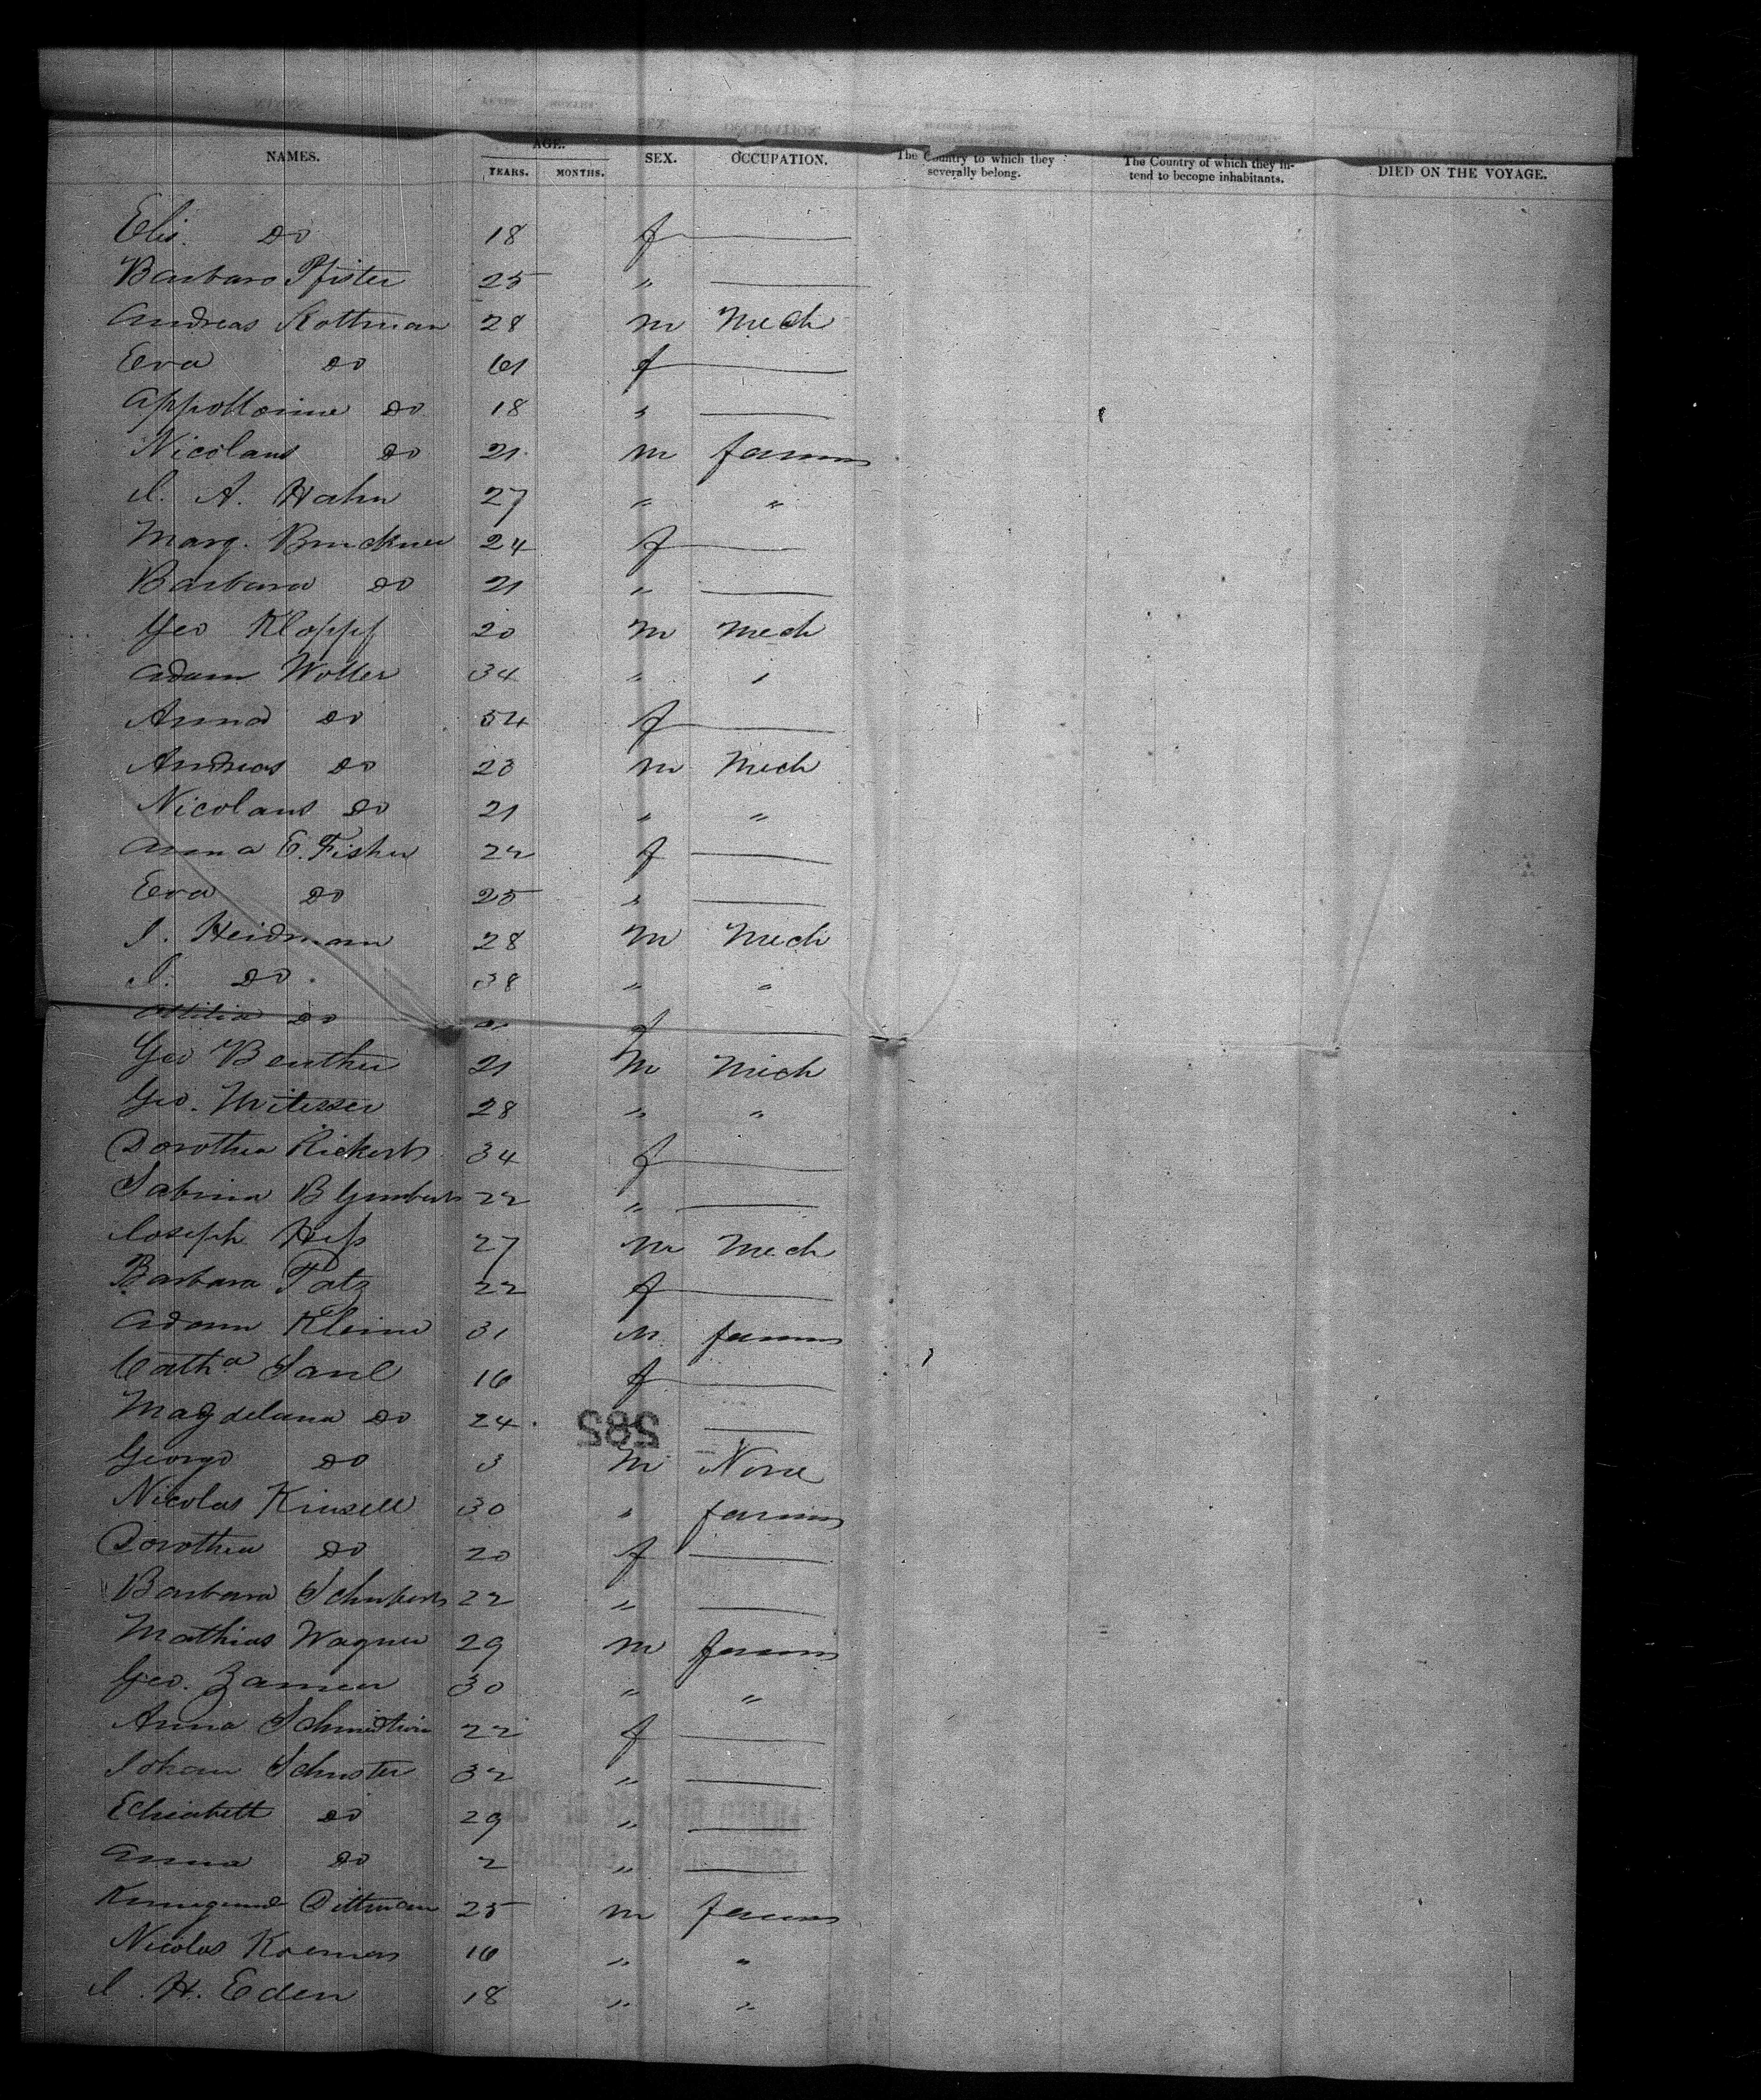 NAMES. AGE. SEX. OCCUPATION. The Country to which they severally belong. The Country of which they intend to become inhabitants. DIED ON THE VOYAGE.
YEARS. MONTHS.
Elis. Do 18 f
Barbara Pfister 25 "
Andreas Kottman 28 m Mech
Eva Do 61 f
Appollonine Do 18 "
Nicolaus Do 21 m farmer
J. A. Hahn 27 " "
Marg. Bruckner 24 f
Barbara Do 21 "
Geo Kloppf 20 m Mech
Adam Woller 34 " "
Anna Do 54 f
Andreas Do 23 m Mech
Nicolaus Do 21 " "
Anna E. Fisher 22 f
Eva Do 25 "
J. Heidmann 28 m Mech
J. Do 38 " "
Do f
Geo Beuther 21 m Mech
Geo. Mitesser 28 " "
Dorothea Rickerts 34 f
Sabina B 22 "
Joseph Hess 27 m Mech
Barbara Patz 22 f
Adam Kleine 31 m farmer
Catha Saul 16 f
Magdelana Do 24
585
George Do 3 m None
Nicolas Kinsell 30 " farmer
Dorothea Do 20 f
Barbara Schuberts 22 "
Mathias Wagner 29 m farmer
Geo. Zamer 30 " "
Anna 22 f
Johan Schuster 32 "
Elisabett Do 29 "
Anna Do 2 "
Dittman 25 m farmer
Nicolas 16 " "
J. H. Eden 18 " "